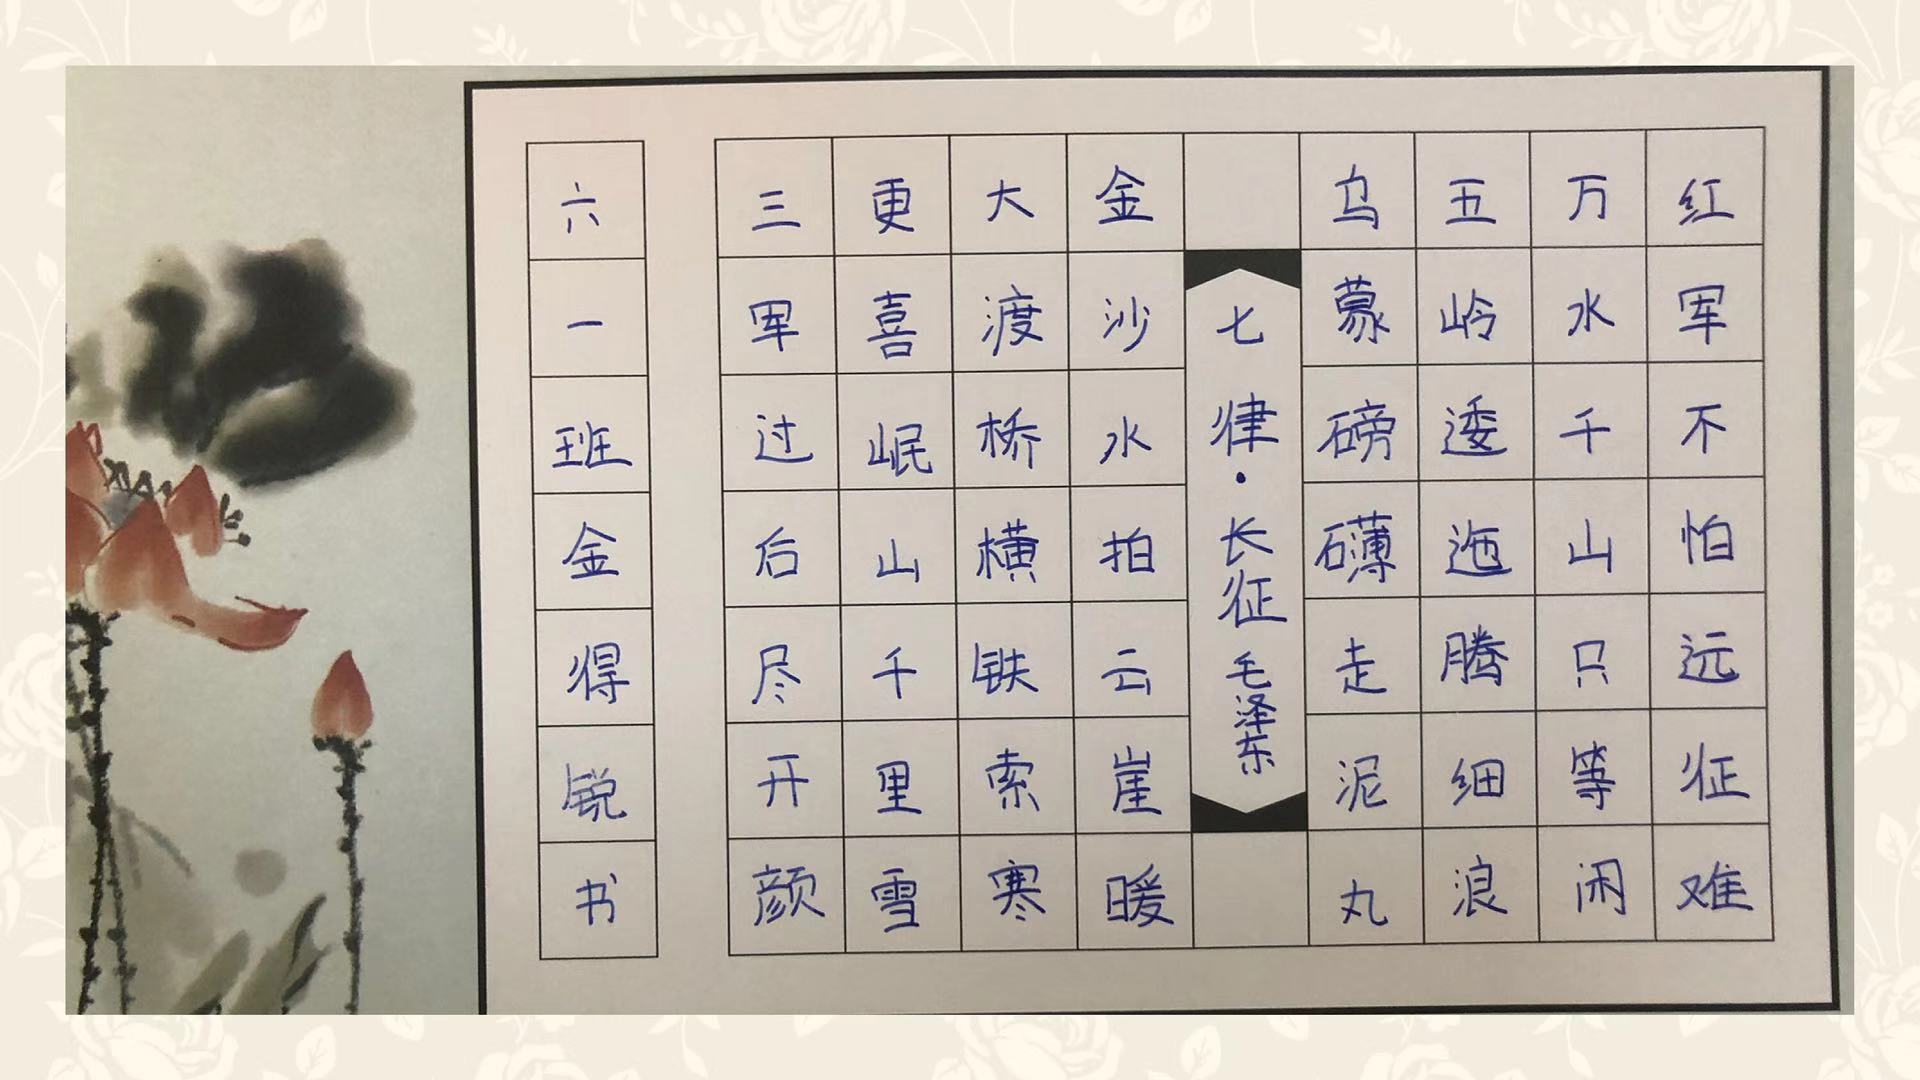 红军不怕远征难
万水千山只等闲
五岭逶迤腾细浪
乌蒙磅礴走泥丸
七律·长征 毛泽东
金沙水拍云崖暖
大渡桥横铁索寒
更喜岷山千里雪
三军过后尽开颜
六一班金得锐书